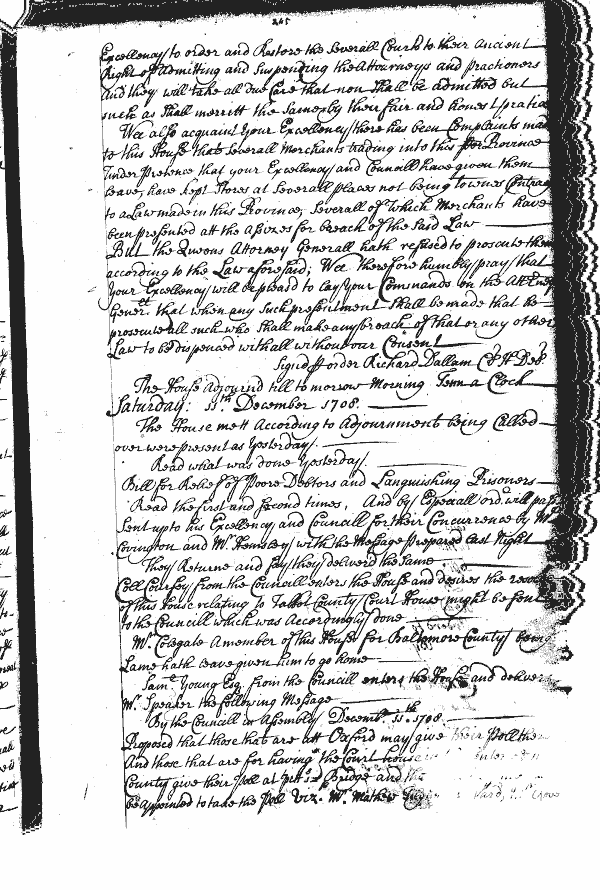 245
Excellency to order and Restore the Severall Courts to their ancient
Right of Admitting and Suspending the Attorneys and practioners
And they will take all due Care that non Shall be admitted but
such as Shall merritt the Same by their fair and honest practice
Wee also acquaint Your Excellency there has been Complaints made
to this House that Severall Merchants trading into this Province
Under pretence that your Excellency and Councill have given them
leave, have kept Stores at Severall places not being townes Contrary
to a Law made in this Province, Severall of which Merchants have
been presented att the Assizes for breach of the Said Law
But the Queens Attorney Generall hath refused to prosecute them
according to the Law aforesaid; Wee therefore humbly pray that
Your Excellency will be pleased to lay Your Commands on the
Gener.ll that when any such presentment Shall be made that he
prosecute all such who Shall make any breach of that or any other
Law to be dispenced withall without our Consent
Signd p order Richard Dallam Cl H Del
The House adjournd till to morrow Morning Tenn a Clock
Saturday: 11th December 1708.
The House mett According to Adjournment being Called
over were present as Yesterday.
Read what was done Yesterday.
Bill for Relief of Poore Debtors and Languishing Prisoners
Read the first and second times, And by Especiall ord. will pass
Sent up to his Excellency and Councill for their Concurrence by Mr
Covington and Mr Hemsley with the Message prepared last Night
They Returne and say they deliverd the Same.
Coll Coursey from the Councill enters the House and desires the
of this House relating to Talbot County Court House might be sent
to the Councill which was Accordingly done
Mr. Colegate a member of this House for Baltemore County being
Lame hath leave given him to go home
Sam.ll Young Esq. from the Councill enters the House and delivers
Mr. Speaker the following Message
By the Councill in Assembly Decemb.r 11.th 1708.
Proposed that those that are att Oxford may give their Poll there
And those that are for having the Court house in
County give their Poll at Pitts Bridge and the
be appointed to take the Poll Viz.t Mr. Mathew